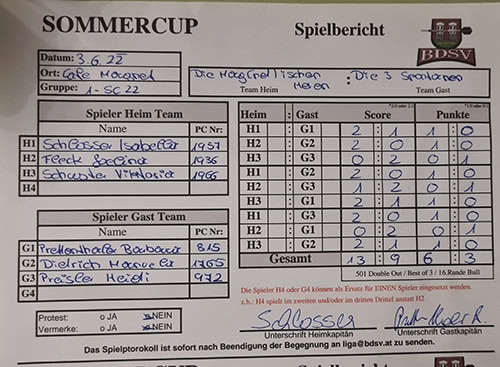 SOMMERCUP Spielbericht
BDSV
Datum: 3.6.22
Ort: Cafe
Gruppe: 1-SC22
Die : Die 3
Team Heim Team Gast
Spieler Heim Team
Name PC Nr:
H1 Schlosser Isabella 1957
H2 Fleck 1936
H3 Schuster Viktoria 1966
H4
Spieler Gast Team
Name PC Nr:
G1 Prettenthaler Barbara 815
G2 Dietrich Manuela 1765
G3 Preisler Heidi 972
G4
Heim : Gast Score Punkte
H1 : G1 2 : 1 1 : 0
H2 : G2 2 : 0 1 : 0
H3 : G3 0 : 2 0 : 1
H1 : G2 2 : 0 1 : 0
H2 : G3 1 : 2 0 : 1
H3 : G1 2 : 0 1 : 0
H1 : G3 2 : 0 1 : 0
H2 : G1 0 : 2 0 : 1
H3 : G2 2 : 1 1 : 0
Gesamt 13 : 9 6 : 3
501 Double Out / Best of 3 / 16.Runde Bull
Die Spieler H4 oder G4 können als Ersatz für EINEN Spieler eingesetzt werden.
z.b.: H4 spielt im zweiten und/oder im dritten Drittel anstatt H2
Protest: o JA o NEIN
Vermerke: o JA o NEIN
Schlosser
Unterschrift Heimkapitän Unterschrift Gastkapitän
Das Spielptorokoll ist sofort nach Beendigung der Begegnung an liga@bdsv.at zu senden.